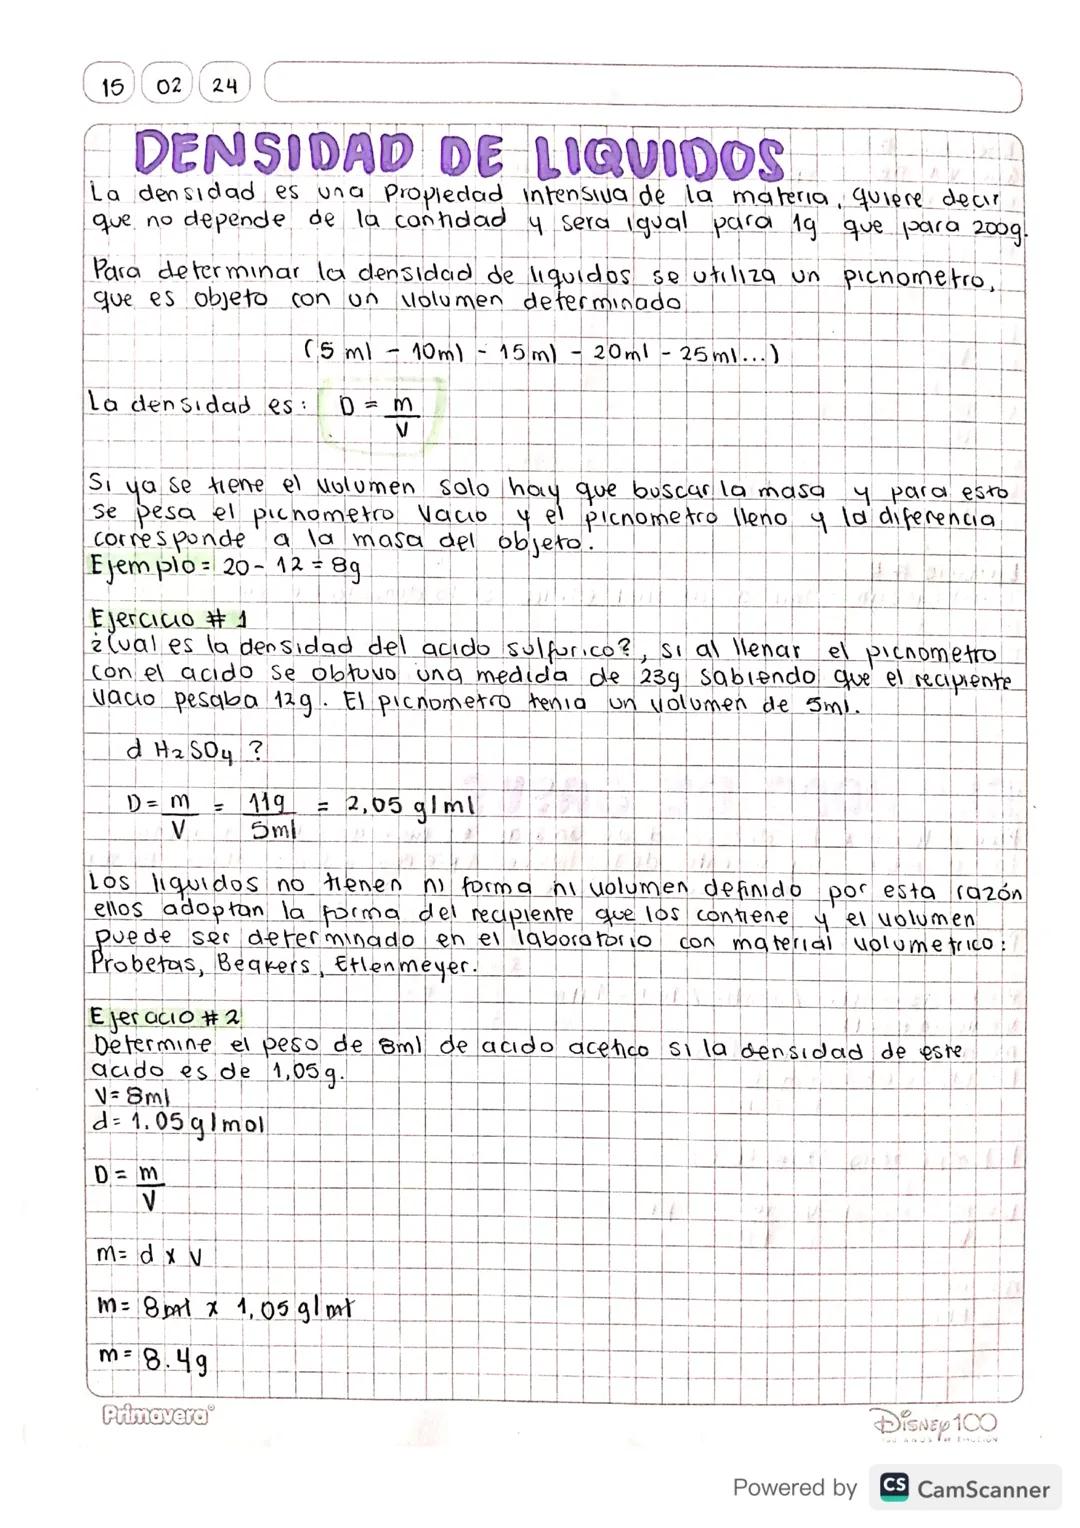 15 02 24
DENSIDAD DE LIQUIDOS
La densidad es una propiedad intensiva de la materia, quiere decir
que no depende de la cantidad y sera igual para 1g que para 200g.
Para determinar la densidad de liquidos se utiliza un picnometro,
que es objeto con un volumen determinado
(5 ml - 10ml - 15ml - 20ml - 25ml...)
La densidad es: D = m
V
Si ya se tiene el volumen solo hay que buscar la masa y para esto
se pesa el picnometro vacio y el picnometro lleno y la diferencia
corresponde a la masa del objeto.
Ejemplo = 20 - 12 = 8g
Ejercicio # 1
¿Cual es la densidad del acido sulfurico?, si al llenar el picnometro
con el acido se obtuvo una medida de 23g sabiendo que el recipiente
vacio pesaba 12g. El picnometro tenia un volumen de 5ml.
d H₂SO₄ ?
D = m = 11g = 2,05 g/ml
V 5ml
Los liquidos no tienen ni forma ni volumen definido por esta razón
ellos adoptan la forma del recipiente que los contiene y el volumen
puede ser determinado en el laboratorio con material volumetrico:
Probetas, Beakers, Erlenmeyer.
Ejercicio # 2
Determine el peso de 8ml de acido acetico si la densidad de este
acido es de 1,05g.
V= 8ml
d= 1.05 g/mol
D = m
V
m= d x v
m= 8 ml x 1,05 g/ml
m= 8.4g
Primavera
Disney 100
Powered by CS CamScanner